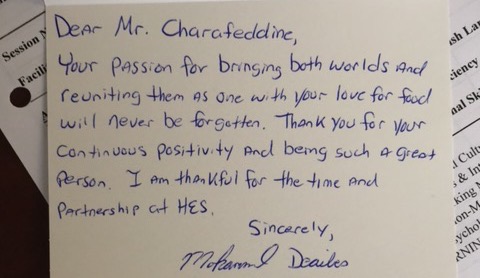 Dear Mr. Charafeddine,
Your passion for bringing both worlds and
reuniting them as one with your love for food
will never be forgotten. Thank you for your
continuous positivity and being such a great
person. I am thankful for the time and
partnership at HES.
Sincerely,
Session
Facili